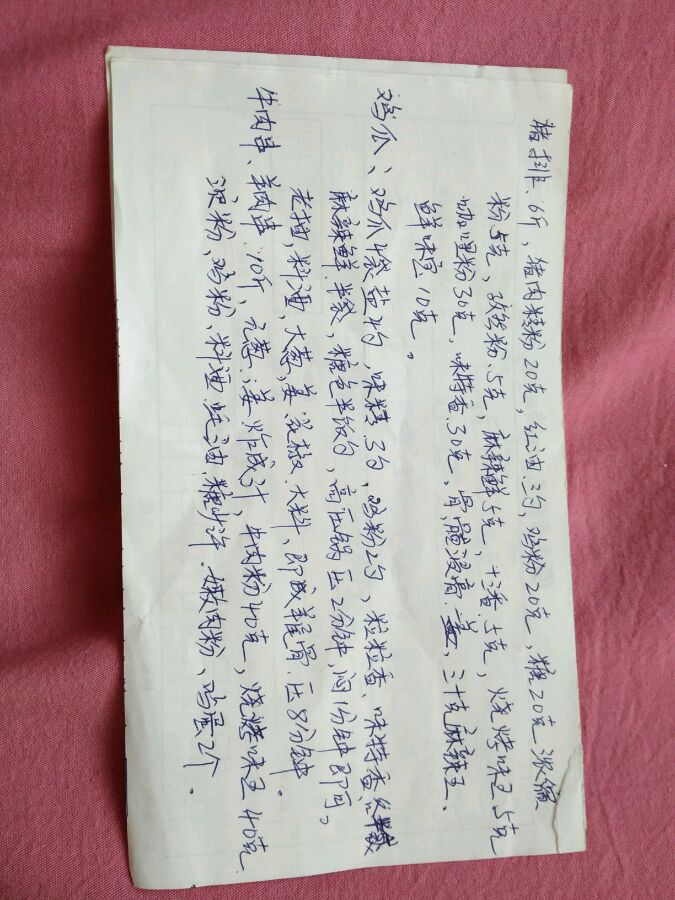 猪排、6斤，猪肉精粉20克，红油三勺，鸡粉20克，糖20克浓缩
粉5克，孜然粉、5克，麻辣鲜5克，十香5克，烧烤味王5克
咖哩粉30克，味特香30克，骨髓浸膏、三十克麻辣王、
鲜味宝10克。
鸡爪：鸡爪4袋盐 味精3勺，鸡粉2勺，粒粒香、味特香
麻辣鲜半袋，糖色半饭勺，高压锅压2分钟，闷1分钟即可。
老抽，料油，大葱，姜、花椒、大料，即成 骨压8分钟。
牛肉串、羊肉串10斤，元葱、姜炸成汁，牛肉粉40克，烧烤味王40克
淀粉、鸡粉、料酒、蚝油、糖 嫩肉粉、鸡蛋2个.